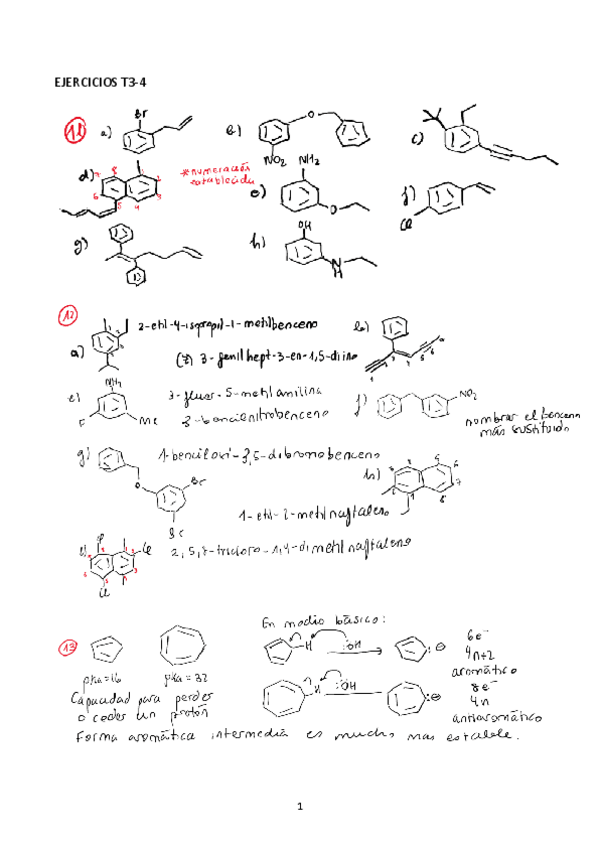 EJERCICIOS T3-4
11 a) Br b) O NO₂ c)
d) 1 2 3 4 5 6 7 8 *numeración establecida e) NH₂ O f) Cl
g) h) OH N H
12
a) 2-etil-4-isopropil-1-metilbenceno b)
(Z) 3-fenilhept-3-en-1,5-diino
1 2 3 4 5 6
e) NH₂ F Me 3-fluor-5-metilanilina f) NO₂
3-bencilnitrobenceno nombrar el benceno
más sustituido
g) O Br Br 1-benciloxi-3,5-dibromobenceno h) 5 6 7 8
1-etil-2-metilnaftaleno
Cl Cl 2,5,7-tricloro-1,4-dimetilnaftaleno
Cl
13 En medio básico:
H :ÖH ⊖ 6e⁻
4n+2
aromático
pKa=16 pKa=32
H :ÖH :⊖ 8e⁻
4n
antiaromático
Capacidad para perder
o ceder un protón
Forma aromática intermedia es mucho mas estable.
1